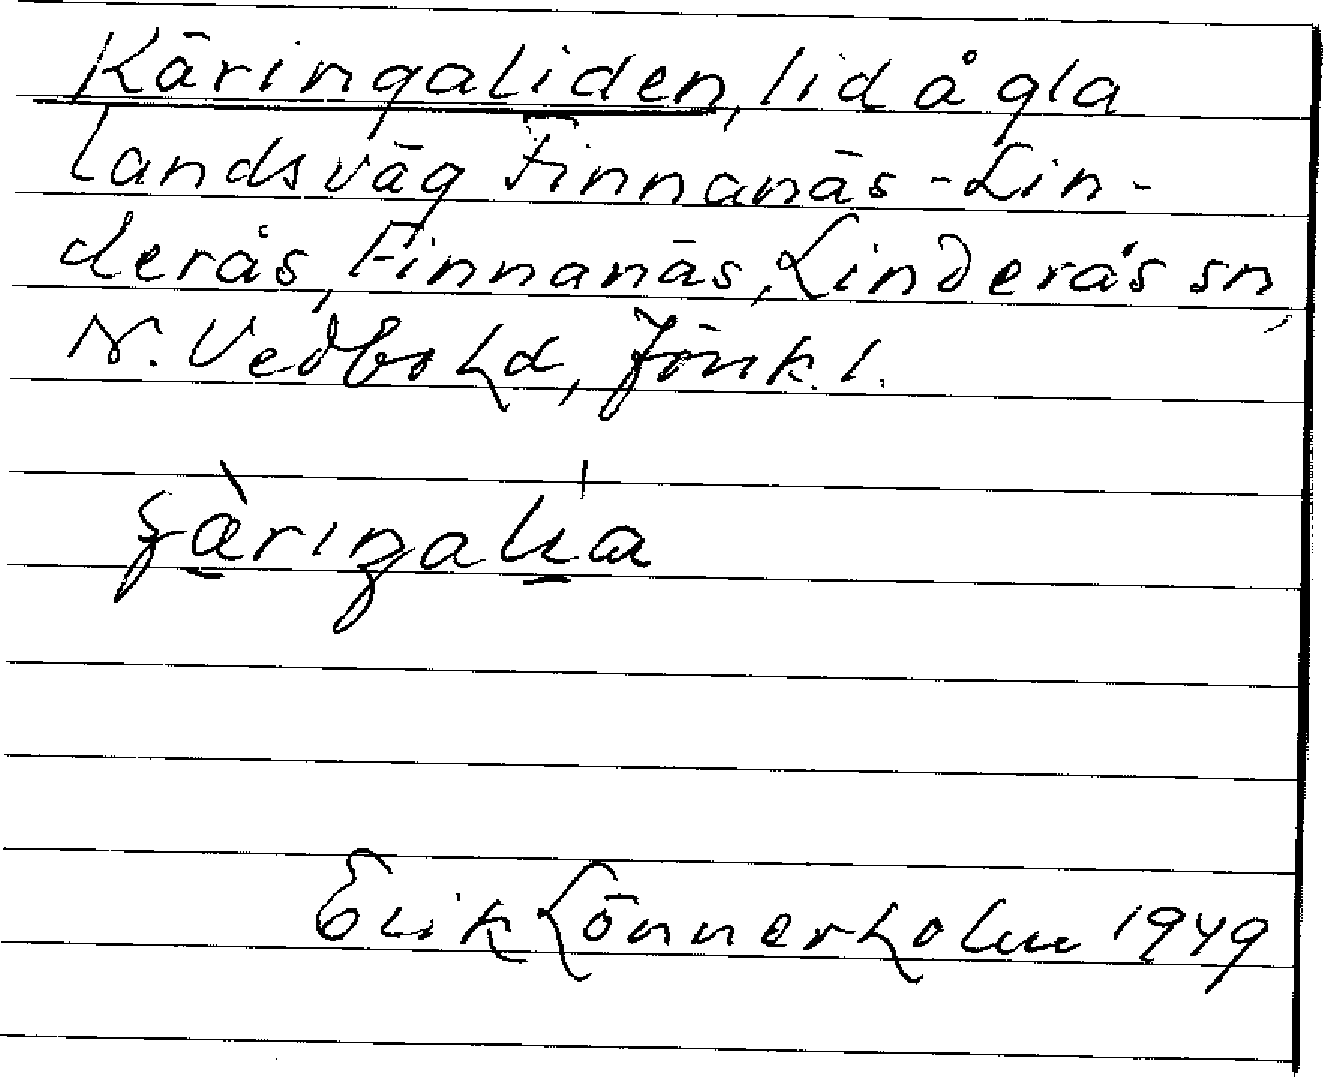 Käringaliden, lid å gla
landsväg Finnanäs - Lin-
derås, Finnanäs, Linderås sn,
N. Vedbo hd, Jönk. l.
Erik Lönnerholm 1949